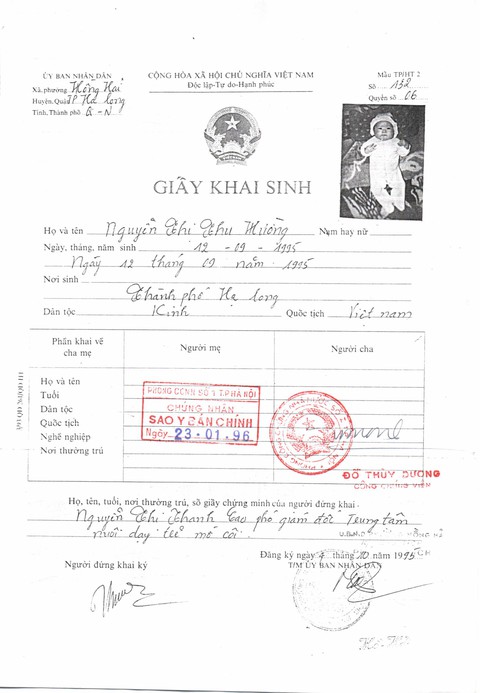 ỦY BAN NHÂN DÂN
Xã, phường Hồng Hải
Huyện, Quận TP Hạ Long
Tỉnh, Thành phố Q-N
CỘNG HÒA XÃ HỘI CHỦ NGHĨA VIỆT NAM
Độc lập-Tự do-Hạnh phúc
Mẫu TP/HT 2
Số 132
Quyển số 06
GIẤY KHAI SINH
Họ và tên Nguyễn Thị Thu Hường Nam hay nữ
Ngày, tháng, năm sinh 12 - 09 - 1995
Ngày 12 tháng 09 năm 1995
Nơi sinh
Thành phố Hạ Long
Dân tộc Kinh Quốc tịch Việt nam
Phần khai về cha mẹ
Người mẹ
Người cha
Họ và tên
Tuổi
Dân tộc
Quốc tịch
Nghề nghiệp
Nơi thường trú
PHÒNG CCNN SỐ 1 T.P HÀ NỘI
CHỨNG NHẬN
SAO Y BẢN CHÍNH
Ngày 23-01-96
ĐỖ THÙY DƯƠNG
CÔNG CHỨNG VIÊN
Họ, tên, tuổi, nơi thường trú, số giấy chứng minh của người đứng khai
Nguyễn Thị Thanh Cao phó giám đốc Trung tâm
nuôi dạy trẻ mồ côi
Đăng ký ngày 4 tháng 10 năm 1995
Người đứng khai ký
T/M ỦY BAN NHÂN DÂN